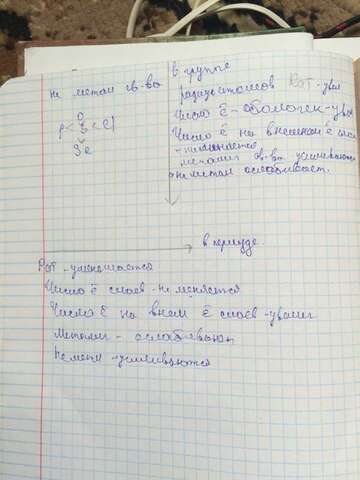 не метал св-ва
O
P < S < Cl
Se
в группе
радиус атомов Rат - увел
Число ē - оболочек - увел
Число ē на внешнем ē слое
- не меняется
металич св-ва усиливаются
а не метал ослабевает.
в периоде.
Rат - уменьшается
Число ē слоев - не меняется
Число ē на внеш ē слоев - увелич
Металич - ослабевают
Немета - усиливаются